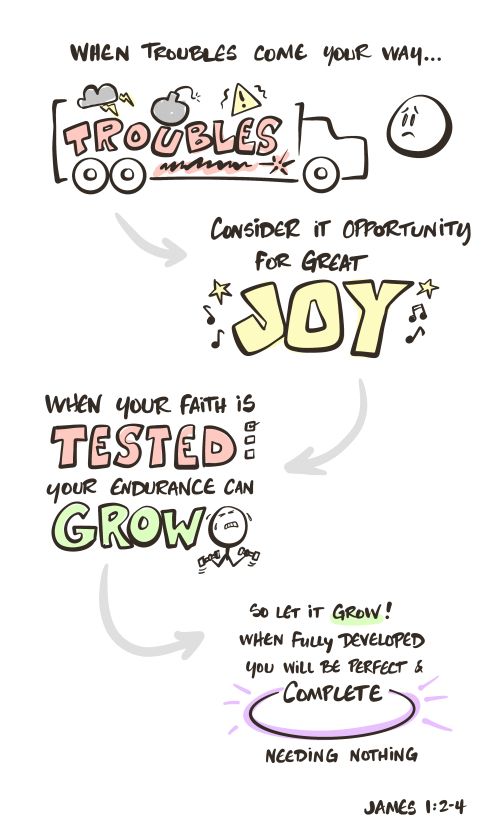 WHEN TROUBLES COME YOUR WAY...
TROUBLES
CONSIDER IT OPPORTUNITY
FOR GREAT
JOY
WHEN YOUR FAITH IS
TESTED
YOUR ENDURANCE CAN
GROW
SO LET IT GROW!
WHEN FULLY DEVELOPED
YOU WILL BE PERFECT &
COMPLETE
NEEDING NOTHING
JAMES 1:2-4